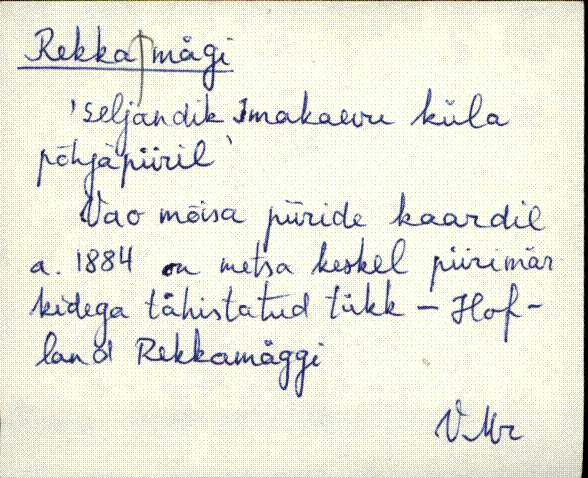 Rekkamägi
'seljandik Imakaevu küla
põhjapiiril'
Vao mõisa piiride kaardil
a. 1884 on metsa keskel piirimär
kidega tähistatud tükk – Hof-
land Rekkamäggi
VMr